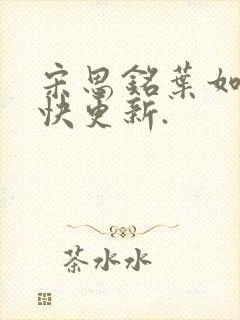 宋思銘葉如
快更新.
茶水水